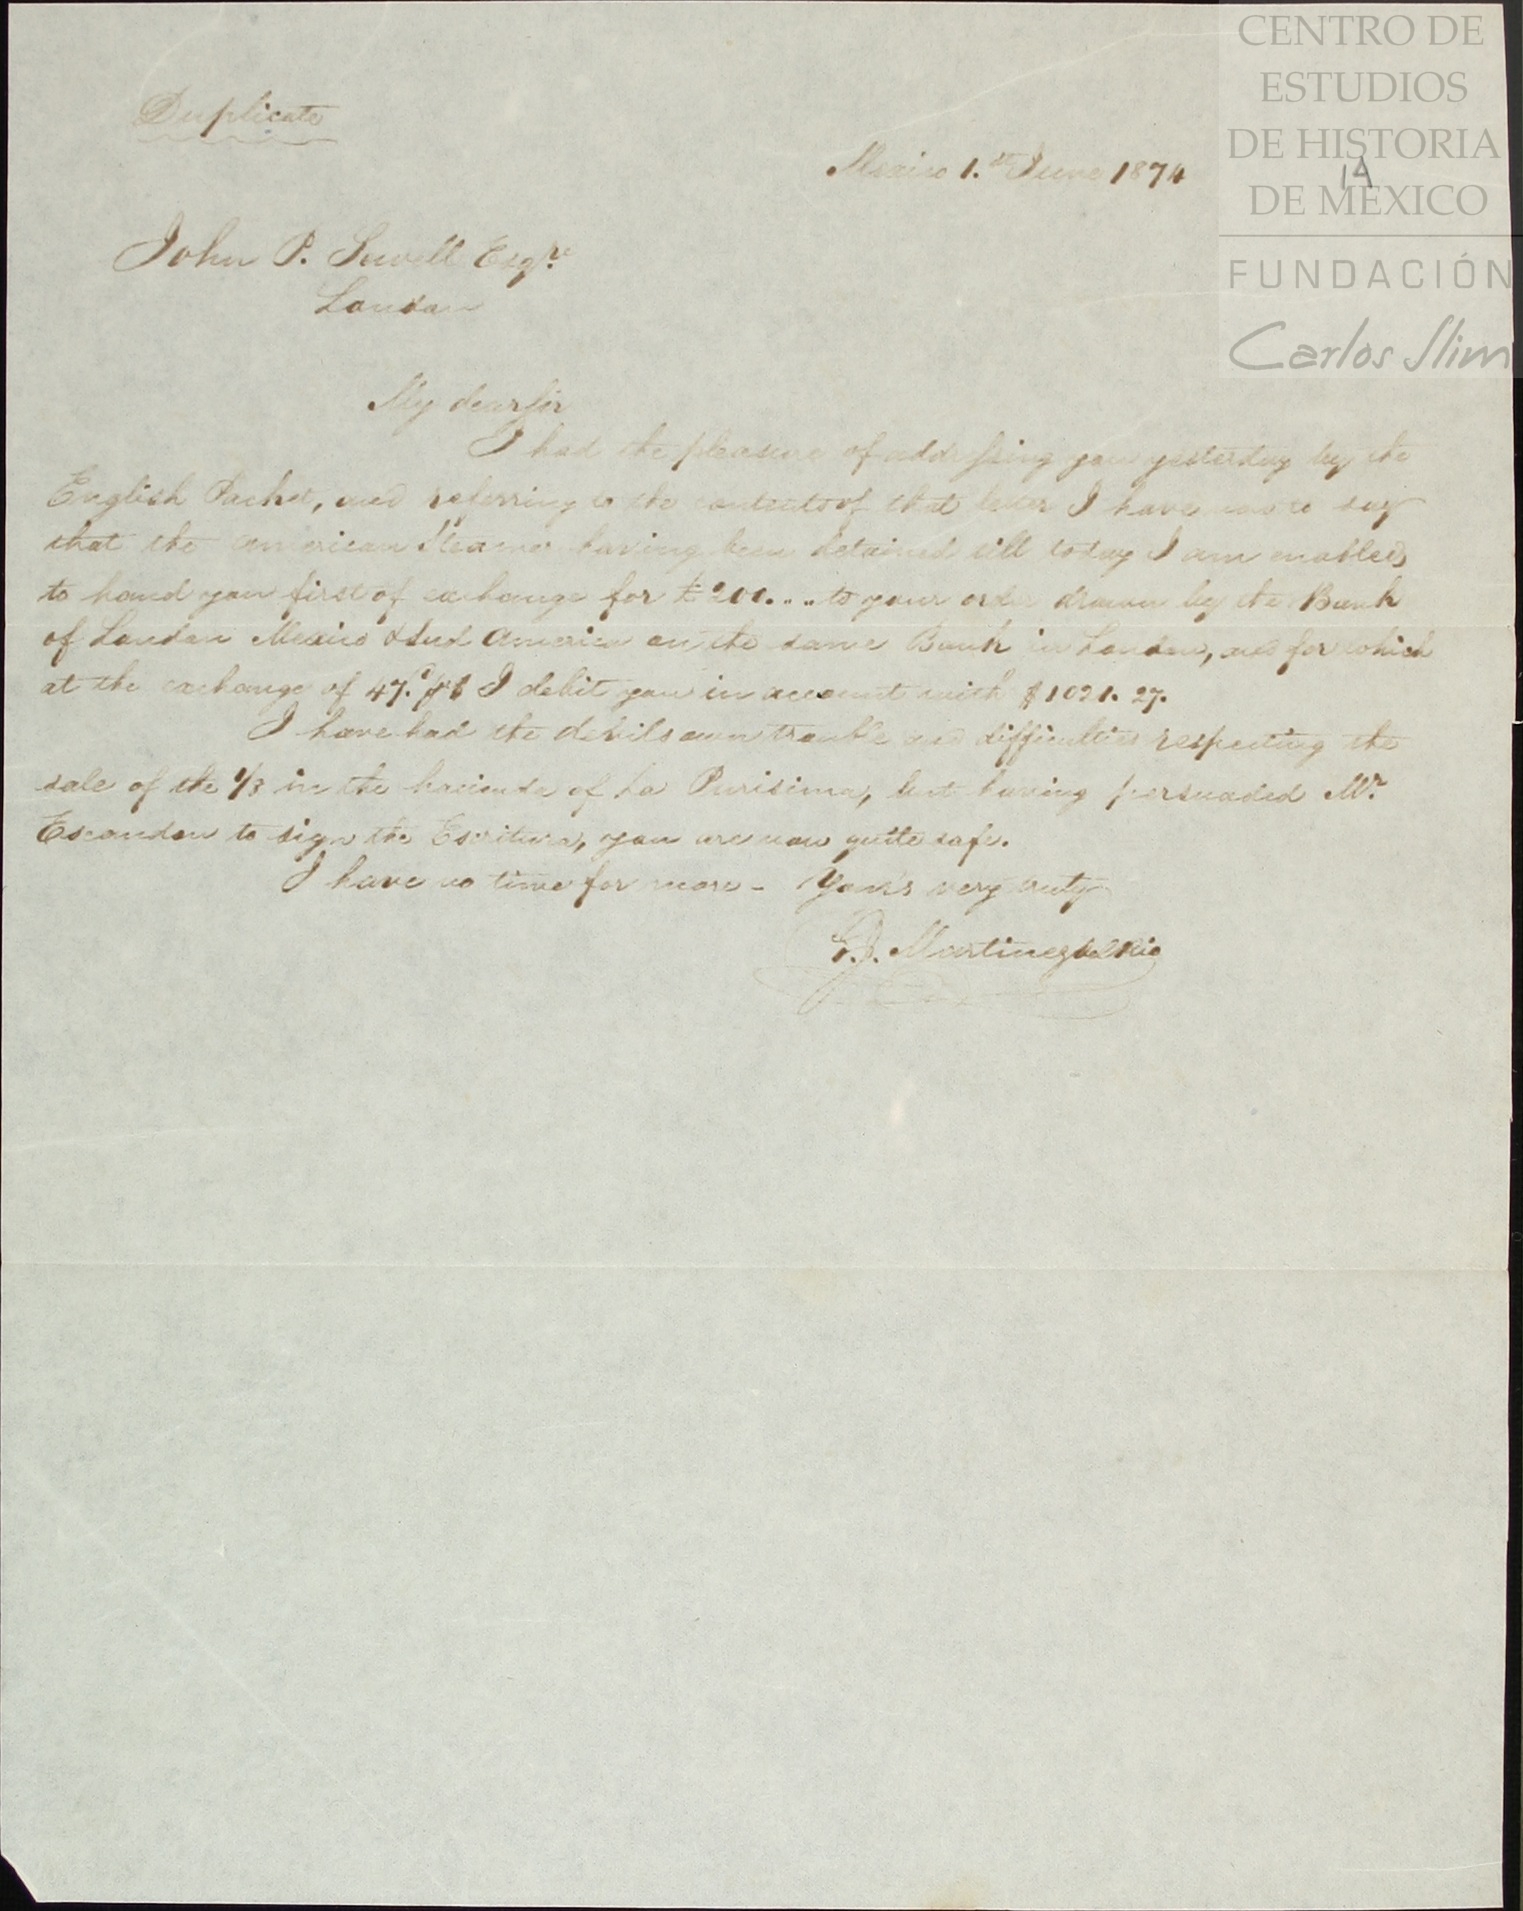 CENTRO DE
ESTUDIOS
DE HISTORIA
DE MÉXICO
FUNDACIÓN
Carlos Slim
14
Duplicate
Mexico 1.st June 1874
John P. Sewell Esqre.
London
My dear Sir
I had the pleasure of addressing you yesterday by the
English Packet, and referring to the contents of that letter I have now to say
that the American Steamer having been detained till today I am enabled
to hand you first of exchange for £200.... to your order drawn by the Bank
of London Mexico & Sud America on the same Bank in London, and for which
at the exchange of 47.d I debit you in account with $1021.27.
I have had the devils own trouble and difficulties respecting the
sale of the 1/3 in the hacienda of La Purisima, but having persuaded Mr.
Escandon to sign the Escritura, you are now quite safe.
I have no time for more - Yours very truly
Martinez del Rio